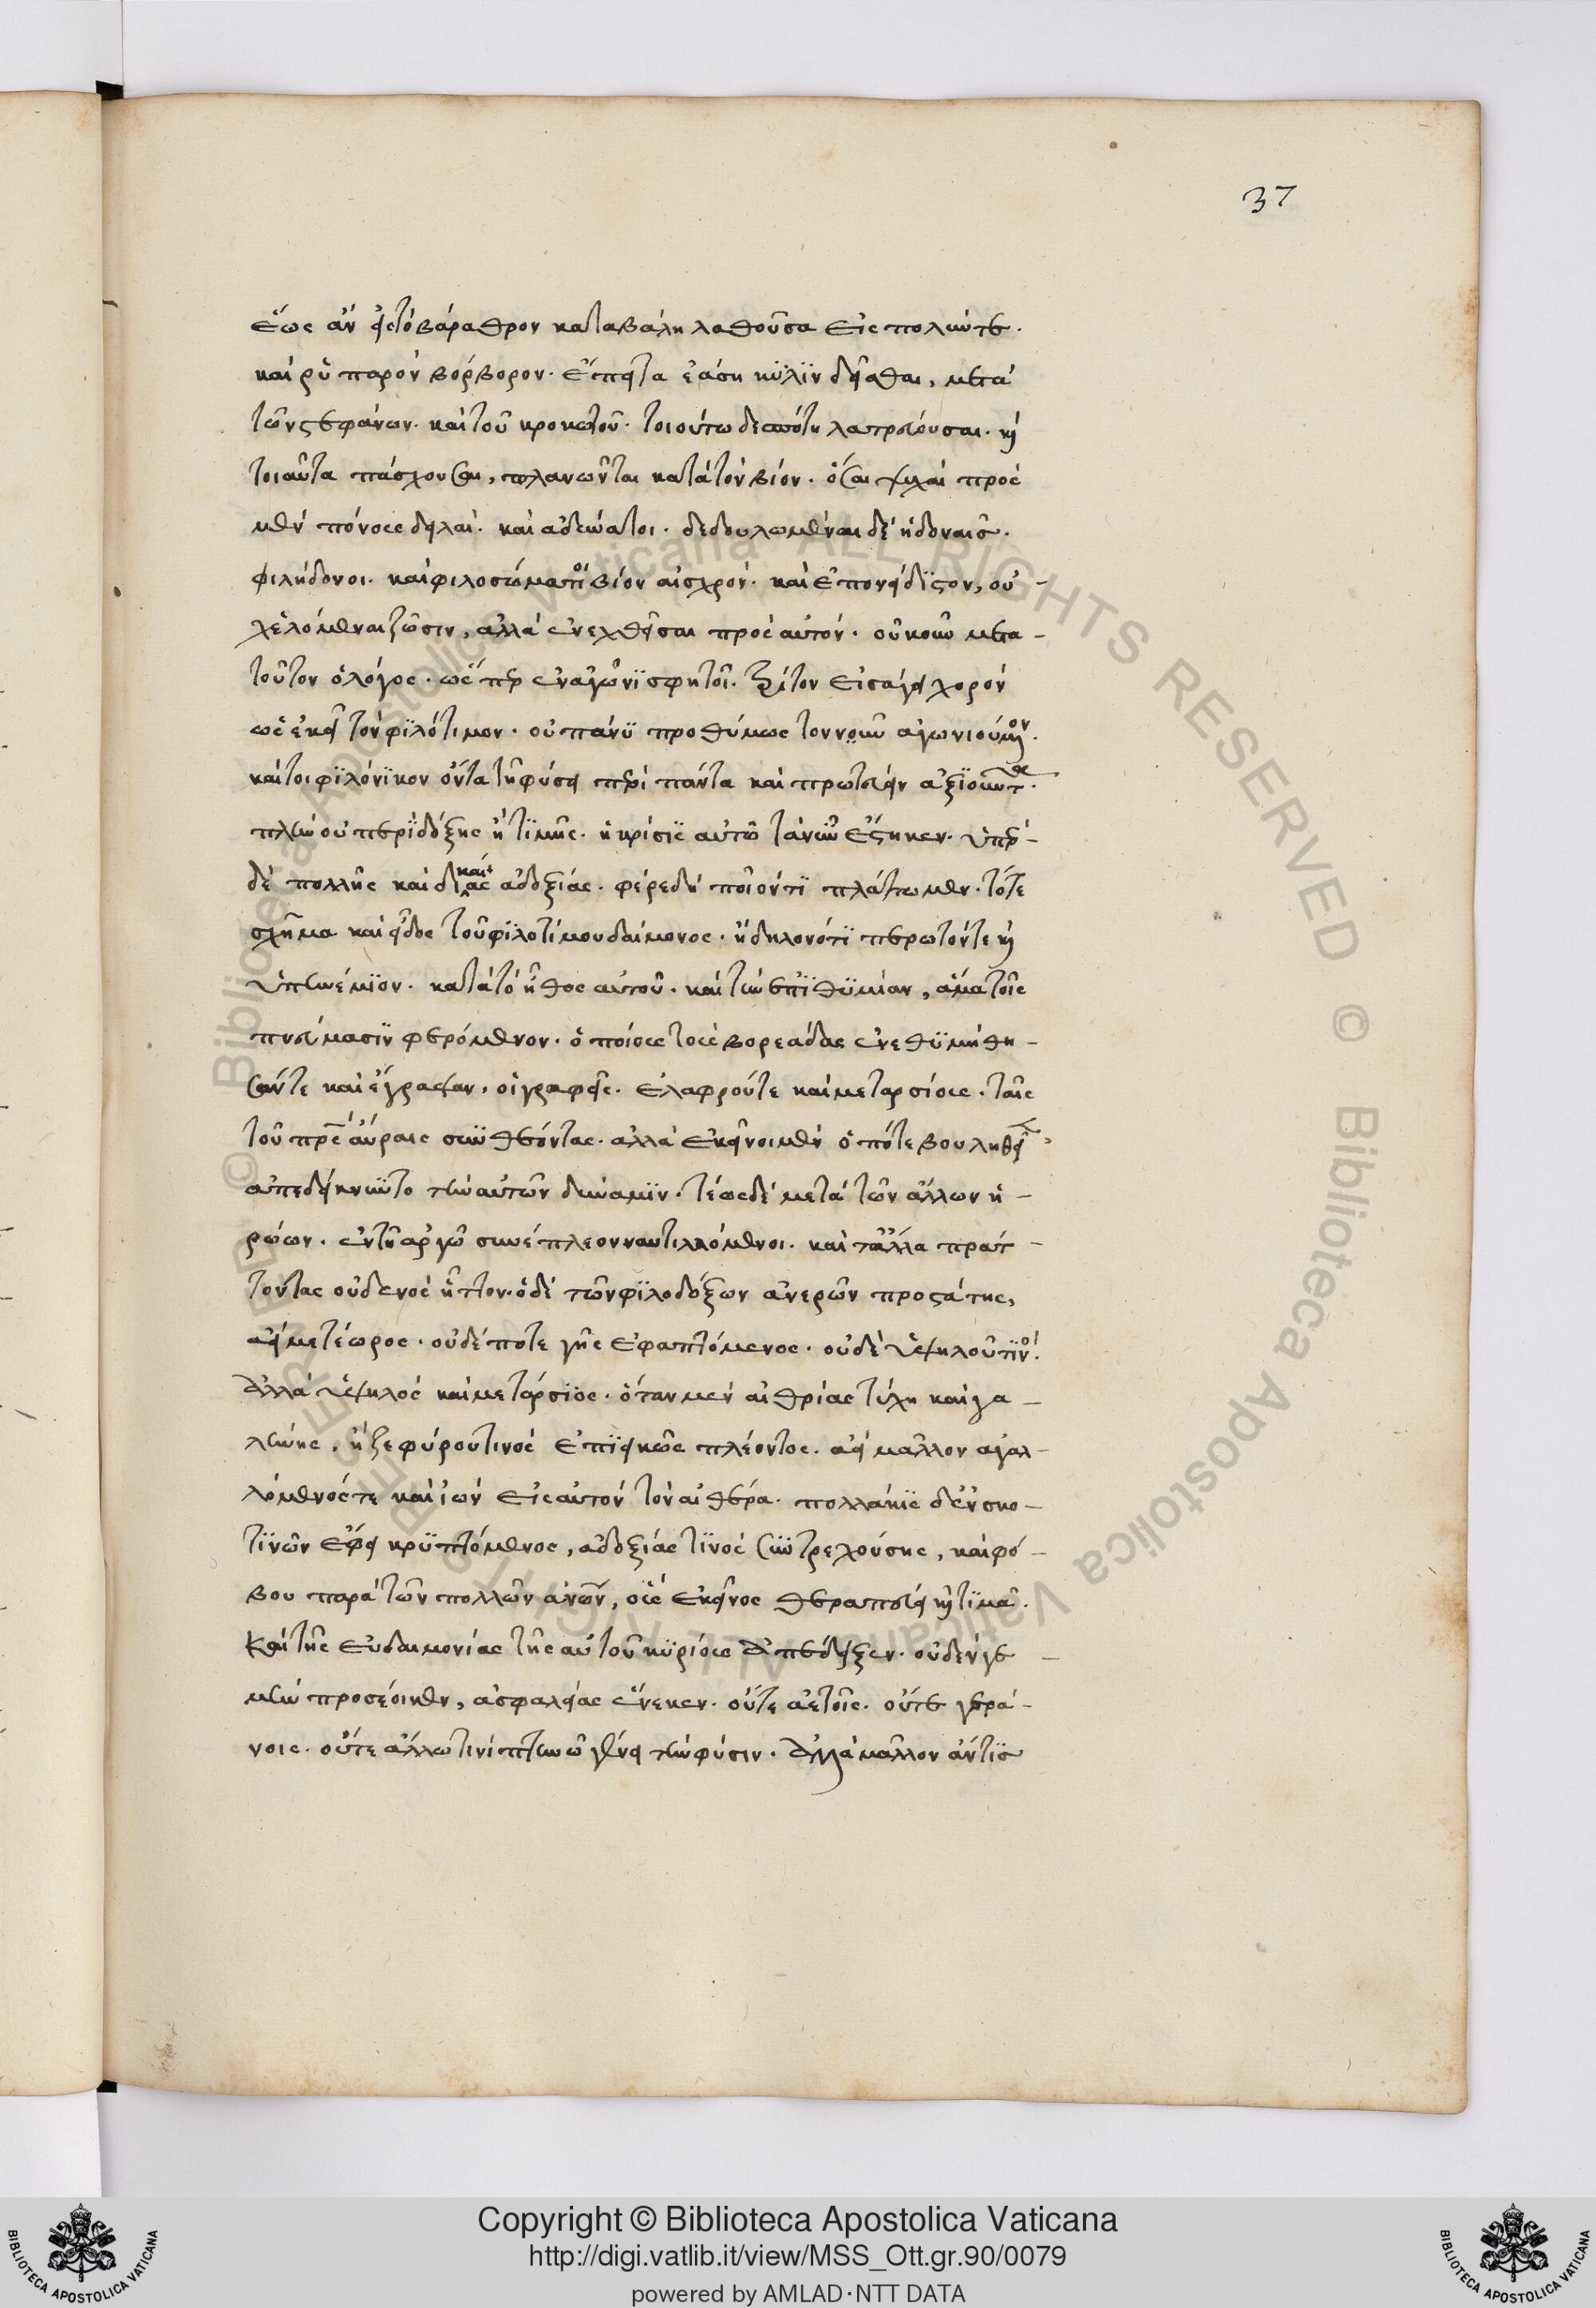 37
ἕως ἂν εἰς τὸ βάραθρον καταβάλη λαθοῦσα εἰς πολύν τε.
καὶ ῥυπαρὸν βόρβορον. ἔπειτα ἐάση κυλϊνδεῖσθαι, μετὰ
τῶν στεφάνων. καὶ τοῦ κροκωτοῦ. τοιούτω δεσπότη λατρεύουσαι. καὶ
τοιαῦτα πάσχουσαι, πλανῶνται κατὰ τὸν βίον. ὅσαι ψυχαὶ πρὸς
μὲν πόνους δειλαὶ. καὶ ἀδύνατοι. δεδουλωμέναι δὲ ἡδοναῖς.
φιλήδονοι. καὶ φιλοσώματοι βίον αἰσχρὸν. καὶ ἐπονείδϊστον, οὐ-
χ ἑλόμεναι ζῶσιν, ἀλλὰ ἐνεχθεῖσαι πρὸς αὐτόν. οὐκοῦν μετα-
τοῦτον ὁ λόγος. ὥσπερ ἐν ἀγῶνϊ σφηττοῖ. τρίτον εἰσάγει χορὸν
ὡς ἐκεῖ τὸν φϊλότιμον. οὐ πάνϋ προθύμως τὸν νοῦν ἀγωνιούμενον.
καίτοι φϊλόνϊκον ὄντα τῆ φύσει περὶ πάντα καὶ πρωτεύειν ἀξϊοῦντα.
πλὴν οὐ περὶ δόξης ἢ τϊμῆς. ἡ κρίσϊς αὐτῶ τανῦν ἕστηκεν. ὑπὲρ-
δὲ πολλῆς καὶ δικαίας ἀδοξίας. φέρε δὴ ποῖόν τϊ πλάττωμεν. τότε
σχῆμα καὶ εἶδος τοῦ φϊλοτίμου δαίμονος. ἢ δηλονότϊ πτερωτόν τε καὶ
ὑπηνέμϊον. κατὰ τὸ ἦθος αὐτοῦ. καὶ τὴν ἐπϊθϋμίαν, ἅμα τοῖς
πνεύμασϊν φερόμενον. ὁποίους τοὺς βορεάδας ἐνεθϋμήθη-
σάν τε καὶ ἔγραψαν, οἱ γραφεῖς. ἐλαφρούς τε καὶ μεταρσίους. ταῖς
τοῦ πατρὸς αὔραις συνθέοντας. ἀλλὰ ἐκεῖνοι μὲν ὁπότε βουληθεῖεν,
ἀπεδείκνυντο τὴν αὐτῶν δύναμϊν. τέως δὲ μετὰ τῶν ἄλλων ἡ-
ρώων. ἐν τῆ ἀργῶ συνέπλεον ναυτιλλόμενοι. καὶ τἆλλα πράτ-
τοντας οὐδενὸς ἧττον. ὁ δὲ τῶν φϊλοδόξων ἀνερῶν προστάτης,
ἀεὶ μετέωρος. οὐδέποτε γῆς ἐφαπτόμενος. οὐδὲ ὑψηλοῦ τϊνός.
ἀλλὰ ὑψηλὸς καὶ μετάρσϊος. ὅταν μὲν αἰθρίας τύχη καὶ γα-
λήνης, ἢ ζεφύρου τινὸς ἐπϊεικῶς πλέοντος. ἀεὶ μᾶλλον ἀγαλ-
λόμενός τε καὶ ἰὼν εἰς αὐτὸν τὸν αἰθέρα. πολλάκϊς δ ἐν σκο-
τϊνῶν ἔφει κρϋπτόμενος, ἀδοξίας τϊνὸς συντρεχούσης, καὶ φό-
βου παρὰ τῶν πολλῶν ἀνῶν, οὓς ἐκεῖνος θεραπεύει καὶ τϊμᾶ.
καὶ τῆς εὐδαιμονίας τῆς αὑτοῦ κϋρίους ἀπέδειξεν. οὐδὲν γε
μὴν προσέοικεν, ἀσφαλείας ἕνεκεν. οὔτε ἀετοῖς. οὔτε γερά-
νοις. οὔτε ἄλλω τινὶ πτηνῶ γένει τὴν φύσιν. ἀλλὰ μᾶλλον ἄν τϊς
Copyright © Biblioteca Apostolica Vaticana
http://digi.vatlib.it/view/MSS_Ott.gr.90/0079
powered by AMLAD·NTT DATA